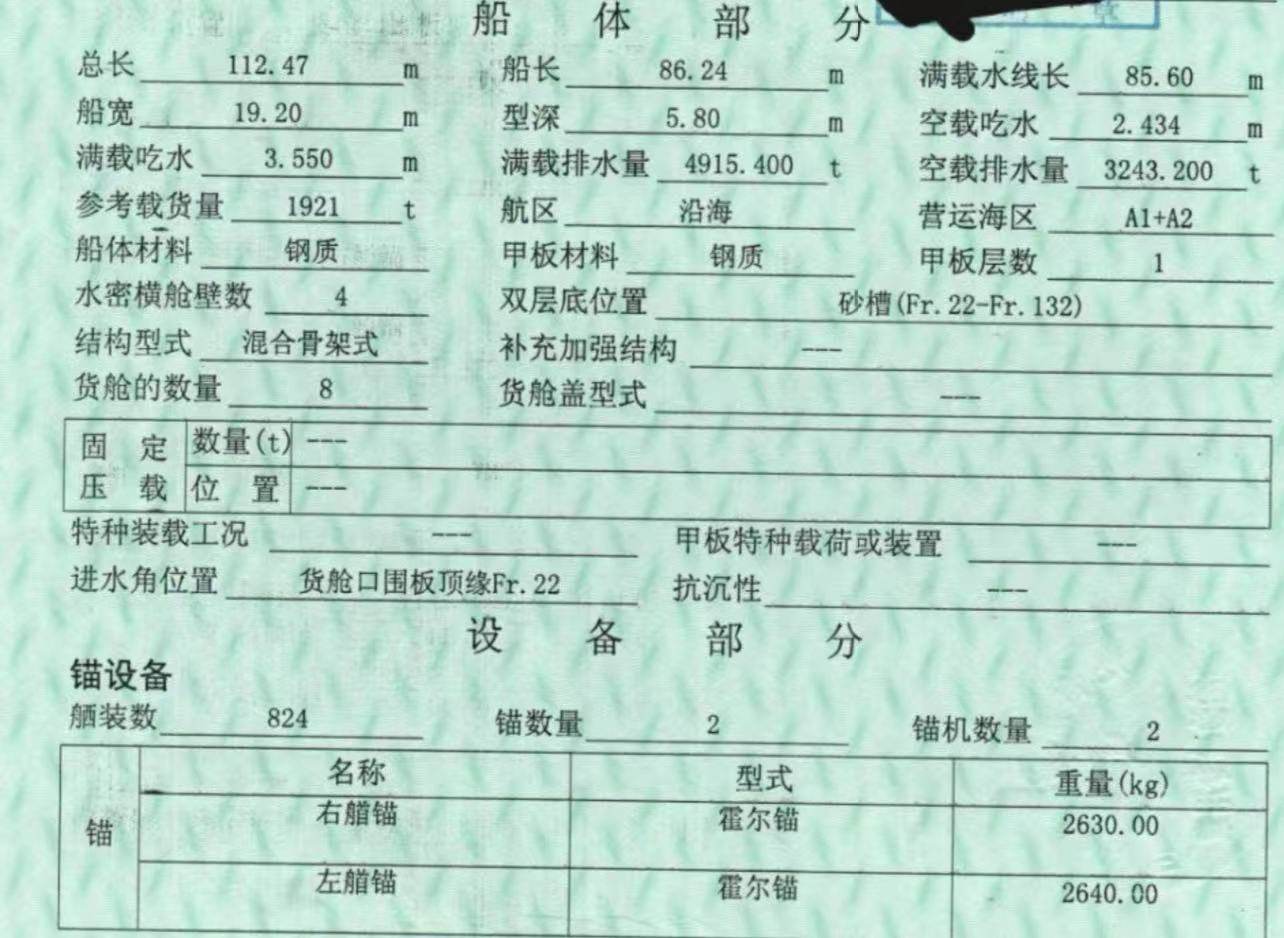 船 体 部 分
总长 112.47 m 船长 86.24 m 满载水线长 85.60 m
船宽 19.20 m 型深 5.80 m 空载吃水 2.434 m
满载吃水 3.550 m 满载排水量 4915.400 t 空载排水量 3243.200 t
参考载货量 1921 t 航区 沿海 营运海区 A1+A2
船体材料 钢质 甲板材料 钢质 甲板层数 1
水密横舱壁数 4 双层底位置 砂槽(Fr.22-Fr.132)
结构型式 混合骨架式 补充加强结构 ---
货舱的数量 8 货舱盖型式 ---
固 定 数量(t) ---
压 载 位 置 ---
特种装载工况 --- 甲板特种载荷或装置 ---
进水角位置 货舱口围板顶缘Fr.22 抗沉性 ---
设 备 部 分
锚设备
舾装数 824 锚数量 2 锚机数量 2
名称 型式 重量(kg)
锚 右艏锚 霍尔锚 2630.00
左艏锚 霍尔锚 2640.00